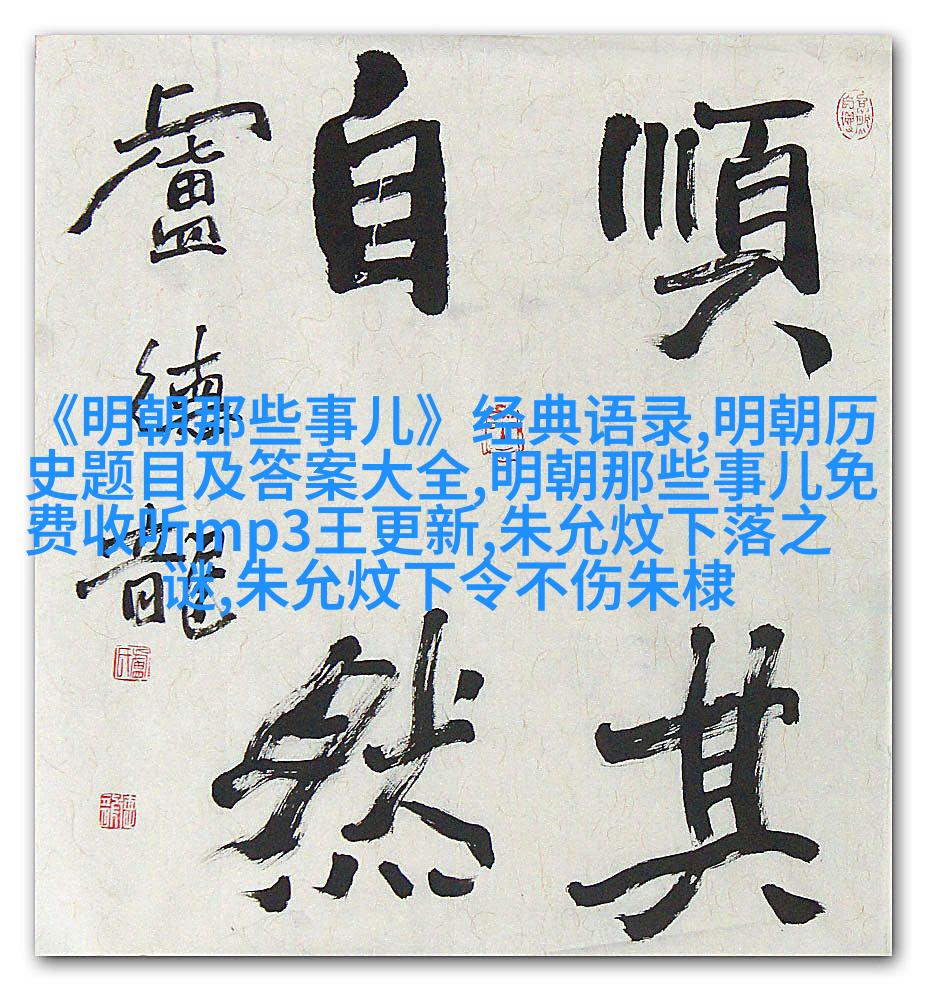 順其
自然
盧德龍
《明朝那些事儿》经典语录,明朝历
史题目及答案大全,明朝那些事儿免
费收听mp3王更新,朱允炆下落之
谜,朱允炆下令不伤朱棣